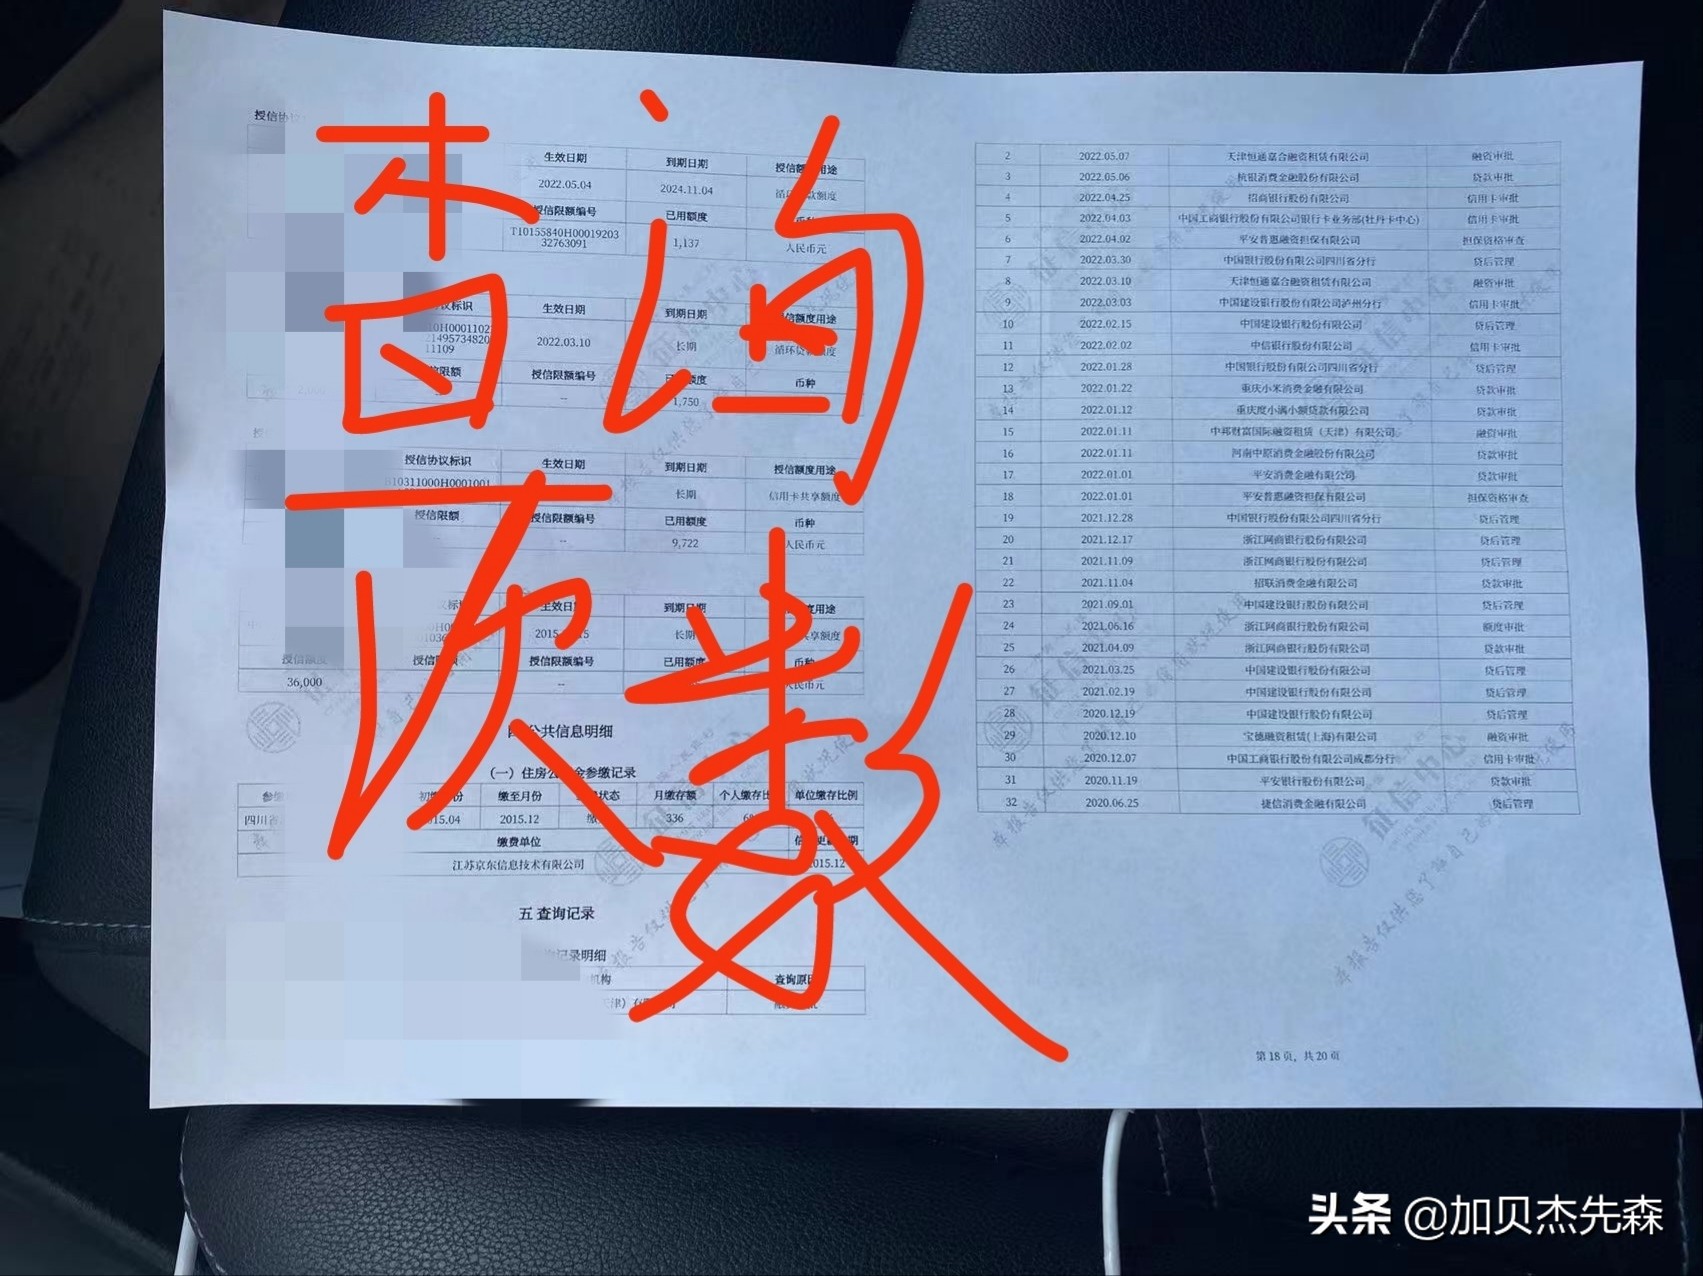 查询
次数
授信协
生效日期 到期日期 授信额 用途
2022.05.04 2024.11.04
授信限额编号 已用额度 币种
T10155840H00019203
32763091 1,137 人民币元
议标识 生效日期 到期日期 授信额度用途
10H0001102
1495734820
11109 2022.03.10 长期 循环贷 额度
信限额 授信限额编号 已用额度 币种
-- 1,750
授信协议标识 生效日期 到期日期 授信额度用途
B10311000H0001001 长期 信用卡共享额度
授信限额 授信限额编号 已用额度 币种
-- -- 9,722 人民币元
生效日 到期日期 度用途
2015 长期 共享额度
授信额度 授信限额编号 已用额度 币种
36,000 -- 人民币元
四 公共信息明细
(一) 住房公 金参缴记录
参缴 初缴 份 缴至月份 状态 月缴存额 个人缴存比 单位缴存比例
四川省 15.04 2015.12 缴 336
缴费单位 信 更 期
江苏京东信息技术有限公司 2015.12
五 查询记录
记录明细
机构 查询原因
2 2022.05.07 天津恒通嘉合融资租赁有限公司 融资审批
3 2022.05.06 杭银消费金融股份有限公司 贷款审批
4 2022.04.25 招商银行股份有限公司 信用卡审批
5 2022.04.03 中国工商银行股份有限公司银行卡业务部(牡丹卡中心) 信用卡审批
6 2022.04.02 平安普惠融资担保有限公司 担保资格审查
7 2022.03.30 中国银行股份有限公司四川省分行 贷后管理
8 2022.03.10 天津恒通嘉合融资租赁有限公司 融资审批
9 2022.03.03 中国建设银行股份有限公司泸州分行 信用卡审批
10 2022.02.15 中国建设银行股份有限公司 贷后管理
11 2022.02.02 中信银行股份有限公司 信用卡审批
12 2022.01.28 中国银行股份有限公司四川省分行 贷后管理
13 2022.01.22 重庆小米消费金融有限公司 贷款审批
14 2022.01.12 重庆度小满小额贷款有限公司 贷款审批
15 2022.01.11 中邦财富国际融资租赁（天津）有限公司 融资审批
16 2022.01.11 河南中原消费金融股份有限公司 贷款审批
17 2022.01.01 平安消费金融有限公司 贷款审批
18 2022.01.01 平安普惠融资担保有限公司 担保资格审查
19 2021.12.28 中国银行股份有限公司四川省分行 贷后管理
20 2021.12.17 浙江网商银行股份有限公司 贷后管理
21 2021.11.09 浙江网商银行股份有限公司 贷后管理
22 2021.11.04 招联消费金融有限公司 贷款审批
23 2021.09.01 中国建设银行股份有限公司 贷后管理
24 2021.06.16 浙江网商银行股份有限公司 额度审批
25 2021.04.09 浙江网商银行股份有限公司 贷款审批
26 2021.03.25 中国建设银行股份有限公司 贷后管理
27 2021.02.19 中国建设银行股份有限公司 贷后管理
28 2020.12.19 中国建设银行股份有限公司 贷后管理
29 2020.12.10 宝德融资租赁(上海)有限公司 融资审批
30 2020.12.07 中国工商银行股份有限公司成都分行 信用卡审批
31 2020.11.19 平安银行股份有限公司 贷款审批
32 2020.06.25 捷信消费金融有限公司 贷后管理
第 18 页，共 20 页
头条 @加贝杰先森